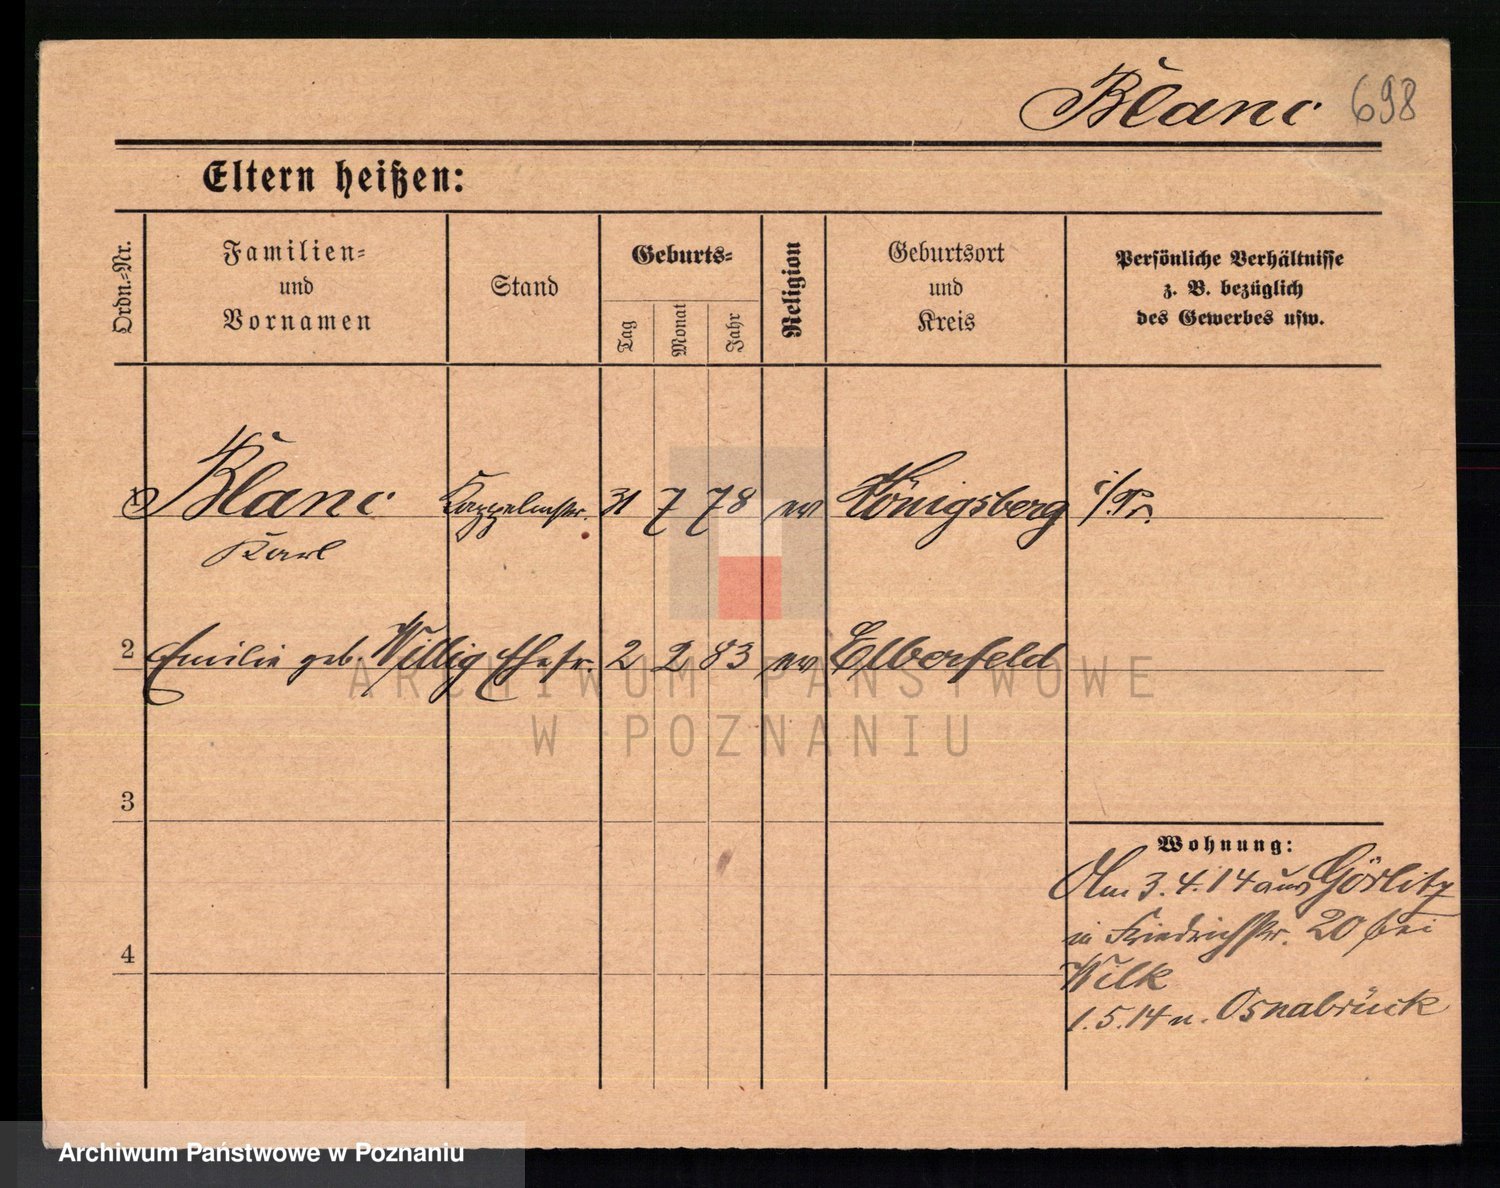 Blanc 698
Eltern heißen:
Ordn.-Nr.
Familien-
und
Vornamen
Stand
Geburts-
Tag
Monat
Jahr
Religion
Geburtsort
und
Kreis
Persönliche Verhältnisse
z. B. bezüglich
des Gewerbes usw.
1 Blanc Kappelmstr. 31 7 78 ev Königsberg i/Pr.
Karl
2 Emilie geb. Willig Ehefr. 2 2 83 ev Elberfeld
ARCHIWUM PAŃSTWOWE
W POZNANIU
3
Wohnung:
Am 3.4.14 aus Görlitz
in Friedrichstr. 20 bei
Wilk
4
1.5.14 n. Osnabrück
Archiwum Państwowe w Poznaniu